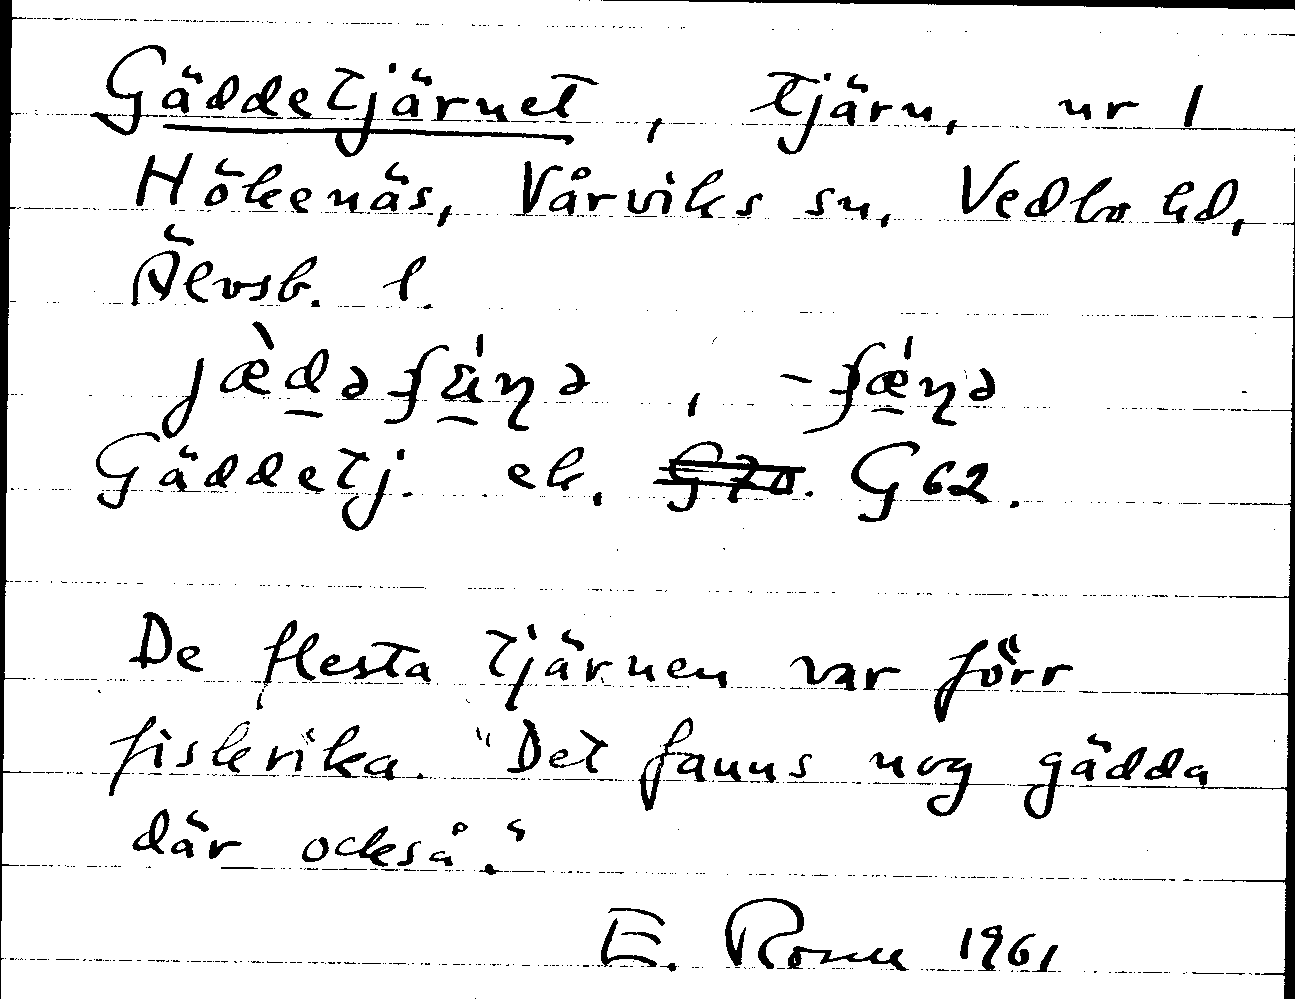 Gäddetjärnet, tjärn, nr 1
Hökenäs, Vårviks sn, Vedbo hd,
Älvsb. l.
Gäddetj. ek. G70. G62.
De flesta tjärnen var förr
fiskrika. "Det fanns nog gädda
där också."
E. 1961